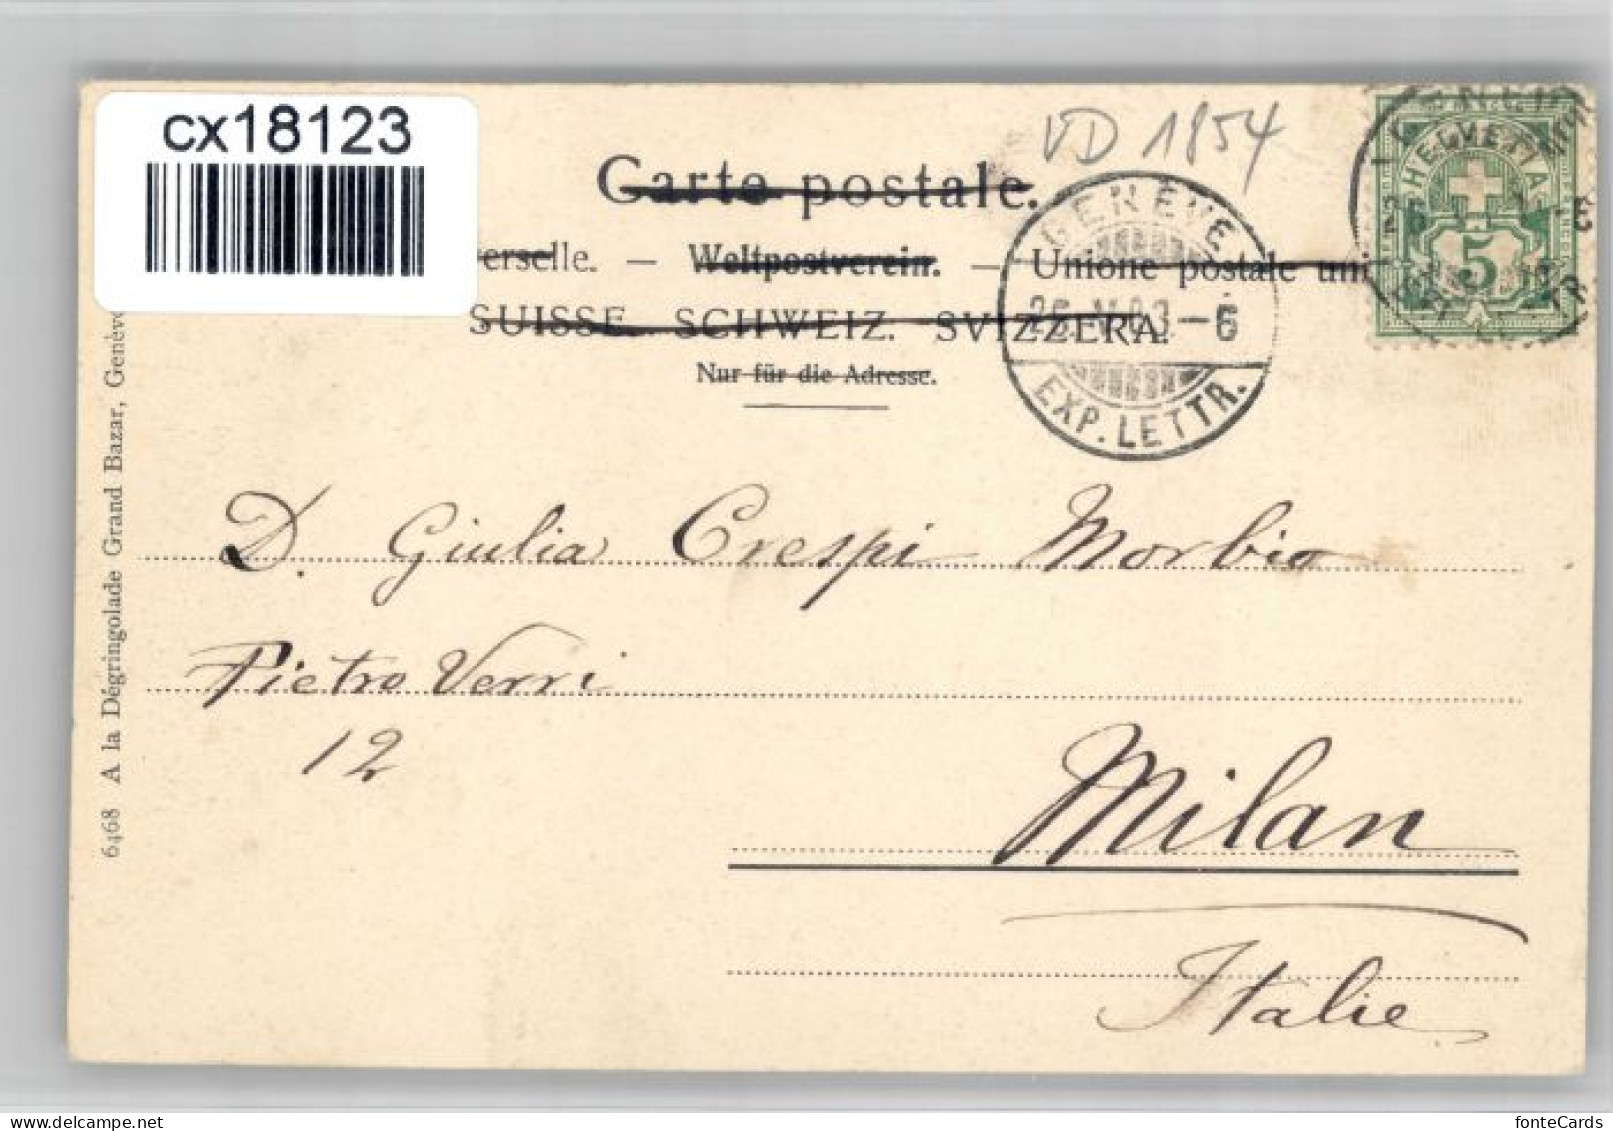 cx18123
VD 1854
Carte postale.
erselle. — Weltpostverein. — Unione postale uni
SUISSE. SCHWEIZ. SVIZZERA.
Nur für die Adresse.
GENÈVE
26.V.03.–6
EXP. LETTR.
HELVETIA
5
D. Giulia Crespi Morbio
Pietro Verri
12
Milan
Italie
6468 A la Dégringolade Grand Bazar, Genève
delcampe.net
fonteCards